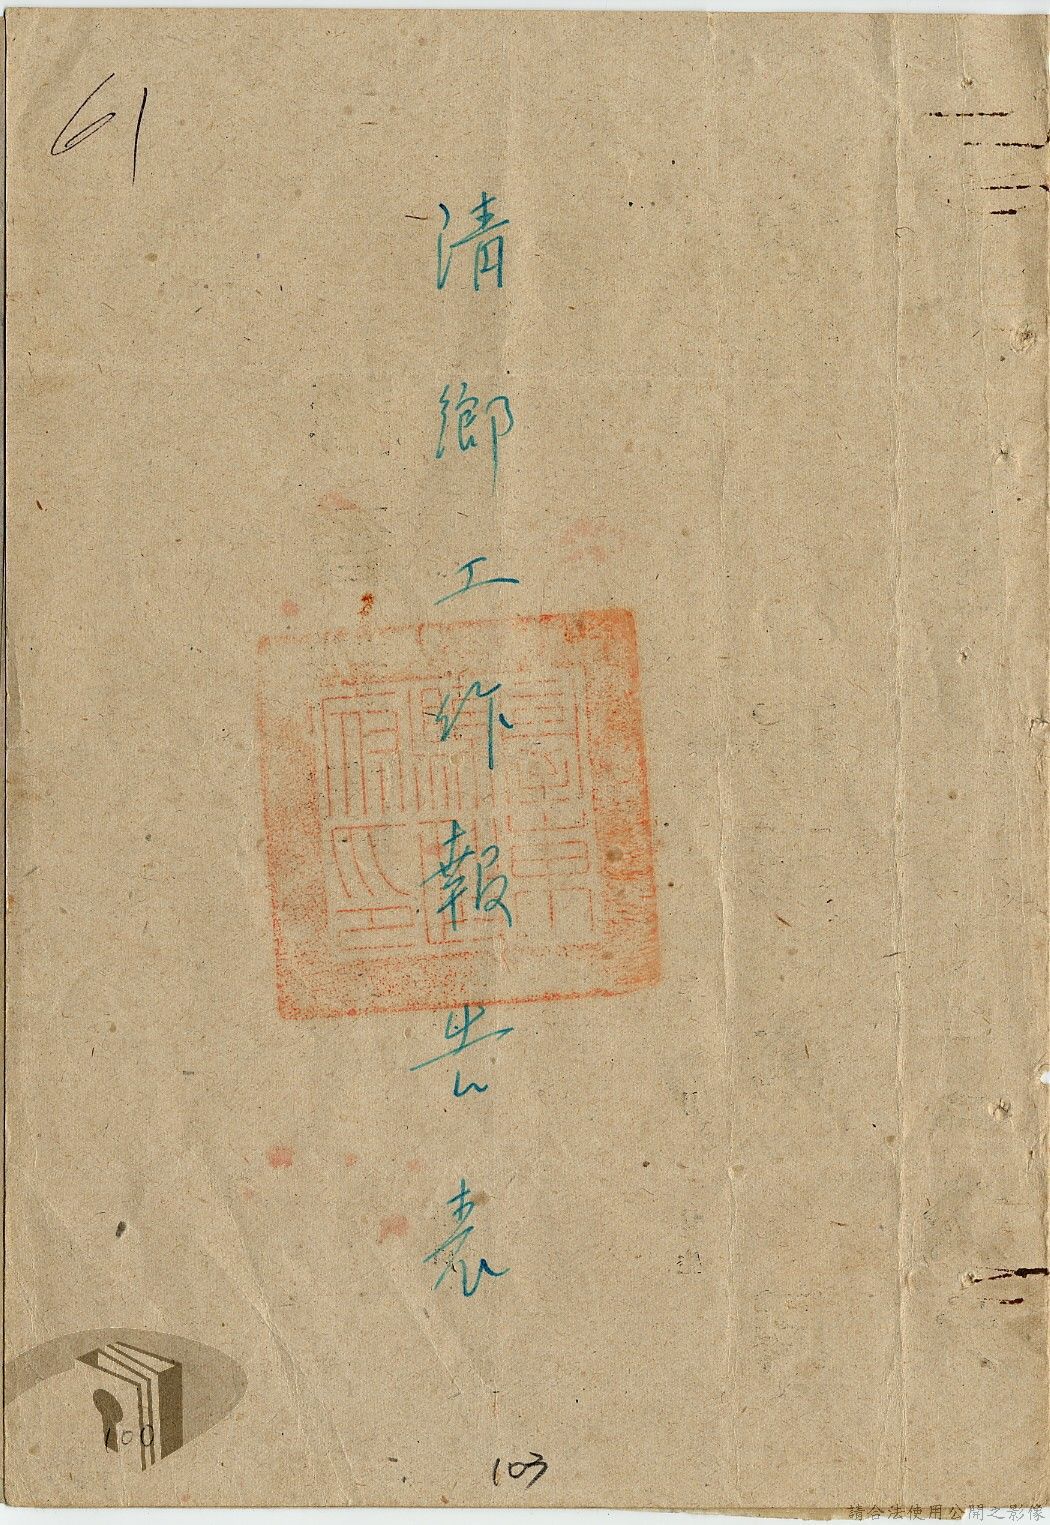 61
清鄉工作報告表
100
103
請合法使用公開之影像